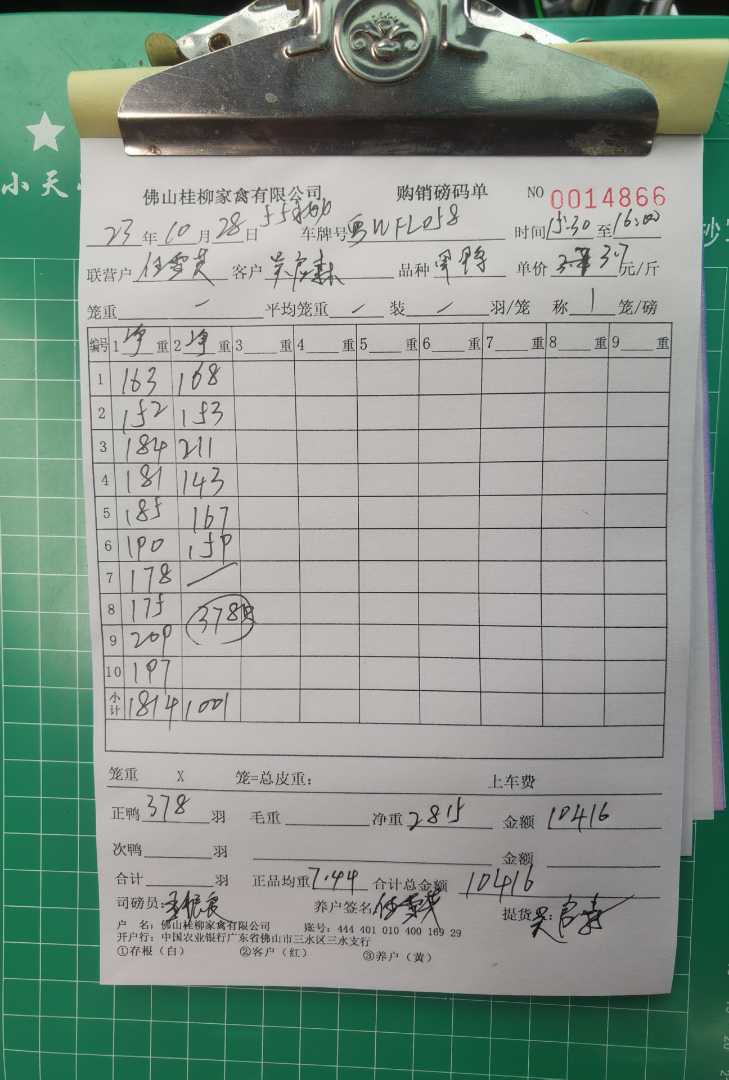 小天
佛山桂柳家禽有限公司 购销磅码单 NO 0014866
23年10月28日 车牌号粤WFL058 时间15:30至16:00
联营户 任雪英 客户 吴启森 品种 单价 3.7元/斤
笼重 — 平均笼重 / 装 / 羽/笼 称 1 笼/磅
编号 1净重 2净重 3重 4重 5重 6重 7重 8重 9重
1 163 168
2 152 153
3 184 211
4 181 143
5 185 167
6 190 159
7 178 —
8 175 378羽
9 209
10 197
小计 1814 1001
笼重 X 笼=总皮重： 上车费
正鸭 378 羽 毛重 净重 2815 金额 10416
次鸭 羽 金额
合计 羽 正品均重 7.44 合计总金额 10416
司磅员： 养户签名 任雪英 提货员： 吴启森
户 名：佛山桂柳家禽有限公司 账号：444 401 010 400 169 29
开户行：中国农业银行广东省佛山市三水区三水支行
①存根（白） ②客户（红） ③养户（黄）